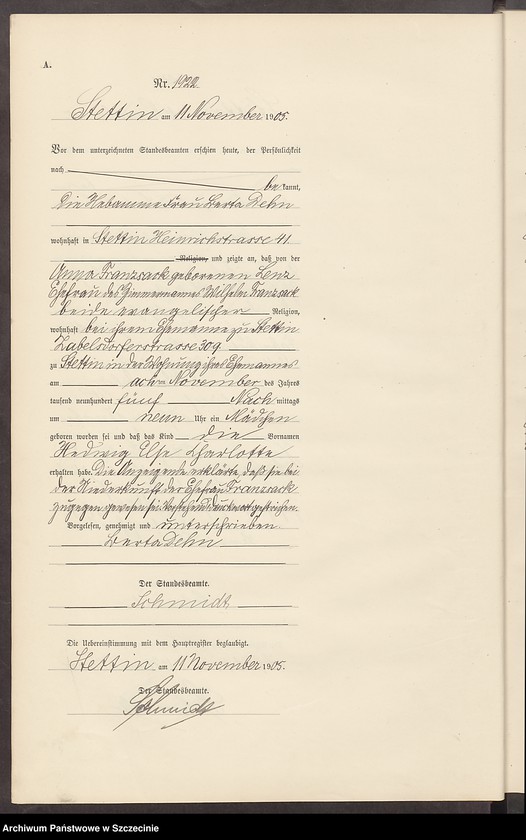 A.
Nr. 1922
Stettin am 11 November 1905.
Vor dem unterzeichneten Standesbeamten erschien heute, der Persönlichkeit
nach
be kannt,
die Hebamme Frau Berta Dehn
wohnhaft in Stettin Heinrichstrasse 41
Religion, und zeigte an, daß von der
Anna Franzsack geborenen Lenz
Ehefrau des Zimmermannes Wilhelm Franzsack
beide evangelischer Religion,
wohnhaft bei ihrem Ehemanne zu Stettin
Zabelsdorferstrasse 309
zu Stettin in der Wohnung ihres Ehemannes
am achten November des Jahres
tausend neunhundert fünf Nach mittags
um neun Uhr ein Mädchen
geboren worden sei und daß das Kind die Vornamen
Hedwig Else Charlotte
erhalten habe. Die Anzeigende erklärte, daß sie bei
der Niederkunft der Ehefrau Franzsack
zugegen gewesen sei. Vorstehend Druckwort gestrichen.
Vorgelesen, genehmigt und unterschrieben
Berta Dehn
Der Standesbeamte.
Schmidt
Die Uebereinstimmung mit dem Hauptregister beglaubigt.
Stettin am 11 November 1905.
Der Standesbeamte.
Schmidt
Archiwum Państwowe w Szczecinie